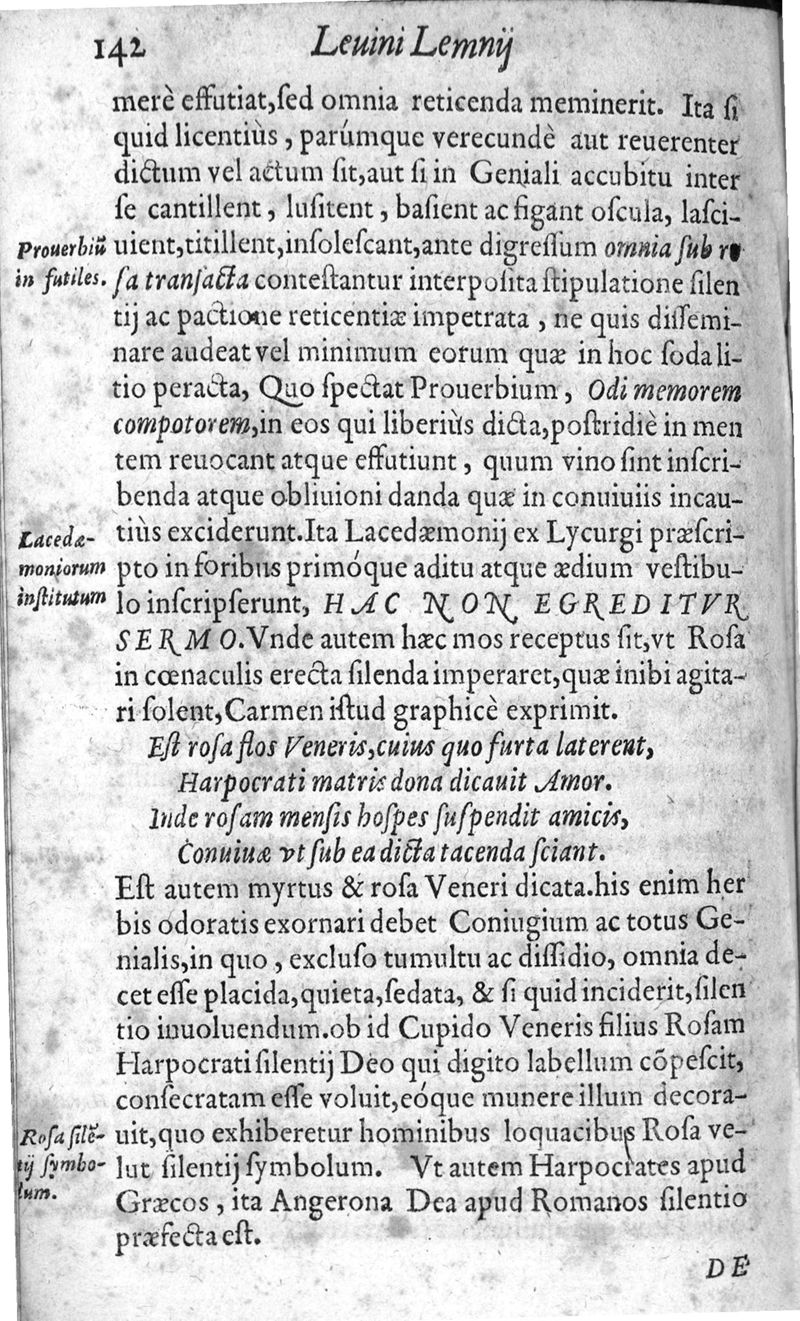 142 Leuini Lemnij
merè effutiat,ſed omnia reticenda meminerit. Ita ſi
quid licentiùs , parúmque verecundè aut reuerenter
dictum vel actum ſit,aut ſi in Geniali accubitu inter
ſe cantillent , luſitent , baſient ac figant oſcula, laſci-
Prouerbiū
in futiles.
uient,titillent,inſoleſcant,ante digreſſum omnia ſub ro
ſa tranſacta conteſtantur interpoſita ſtipulatione ſilen
tij ac pactione reticentiæ impetrata , ne quis diſſemi-
nare audeat vel minimum eorum quæ in hoc ſodali-
tio peracta, Quo ſpectat Prouerbium , Odi memorem
compotorem,in eos qui liberiùs dicta,poſtridiè in men
tem reuocant atque effutiunt , quum vino ſint inſcri-
benda atque obliuioni danda quæ in conuiuiis incau-
Lacedæ-
moniorum
inſtitutum
tiùs exciderunt.Ita Lacedæmonij ex Lycurgi præſcri-
pto in foribus primóque aditu atque ædium veſtibu-
lo inſcripſerunt, HAC NON EGREDITVR
SERMO.Vnde autem hæc mos receptus ſit,vt Roſa
in cœnaculis erecta ſilenda imperaret,quæ inibi agita-
ri ſolent,Carmen iſtud graphicè exprimit.
Eſt roſa flos Veneris,cuius quo furta laterent,
Harpocrati matris dona dicauit Amor.
Inde roſam menſis hoſpes ſuſpendit amicis,
Conuiuæ vt ſub ea dicta tacenda ſciant.
Eſt autem myrtus & roſa Veneri dicata.his enim her
bis odoratis exornari debet Coniugium ac totus Ge-
nialis,in quo , excluſo tumultu ac diſſidio, omnia de-
cet eſſe placida,quieta,ſedata, & ſi quid inciderit,ſilen
tio inuoluendum.ob id Cupido Veneris filius Roſam
Harpocrati ſilentij Deo qui digito labellum cōpeſcit,
conſecratam eſſe voluit,eóque munere illum decora-
Roſa ſilē-
tij ſymbo-
lum.
uit,quo exhiberetur hominibus loquacibus Roſa ve-
lut ſilentij ſymbolum. Vt autem Harpocrates apud
Græcos , ita Angerona Dea apud Romanos ſilentio
præfecta eſt.
DE